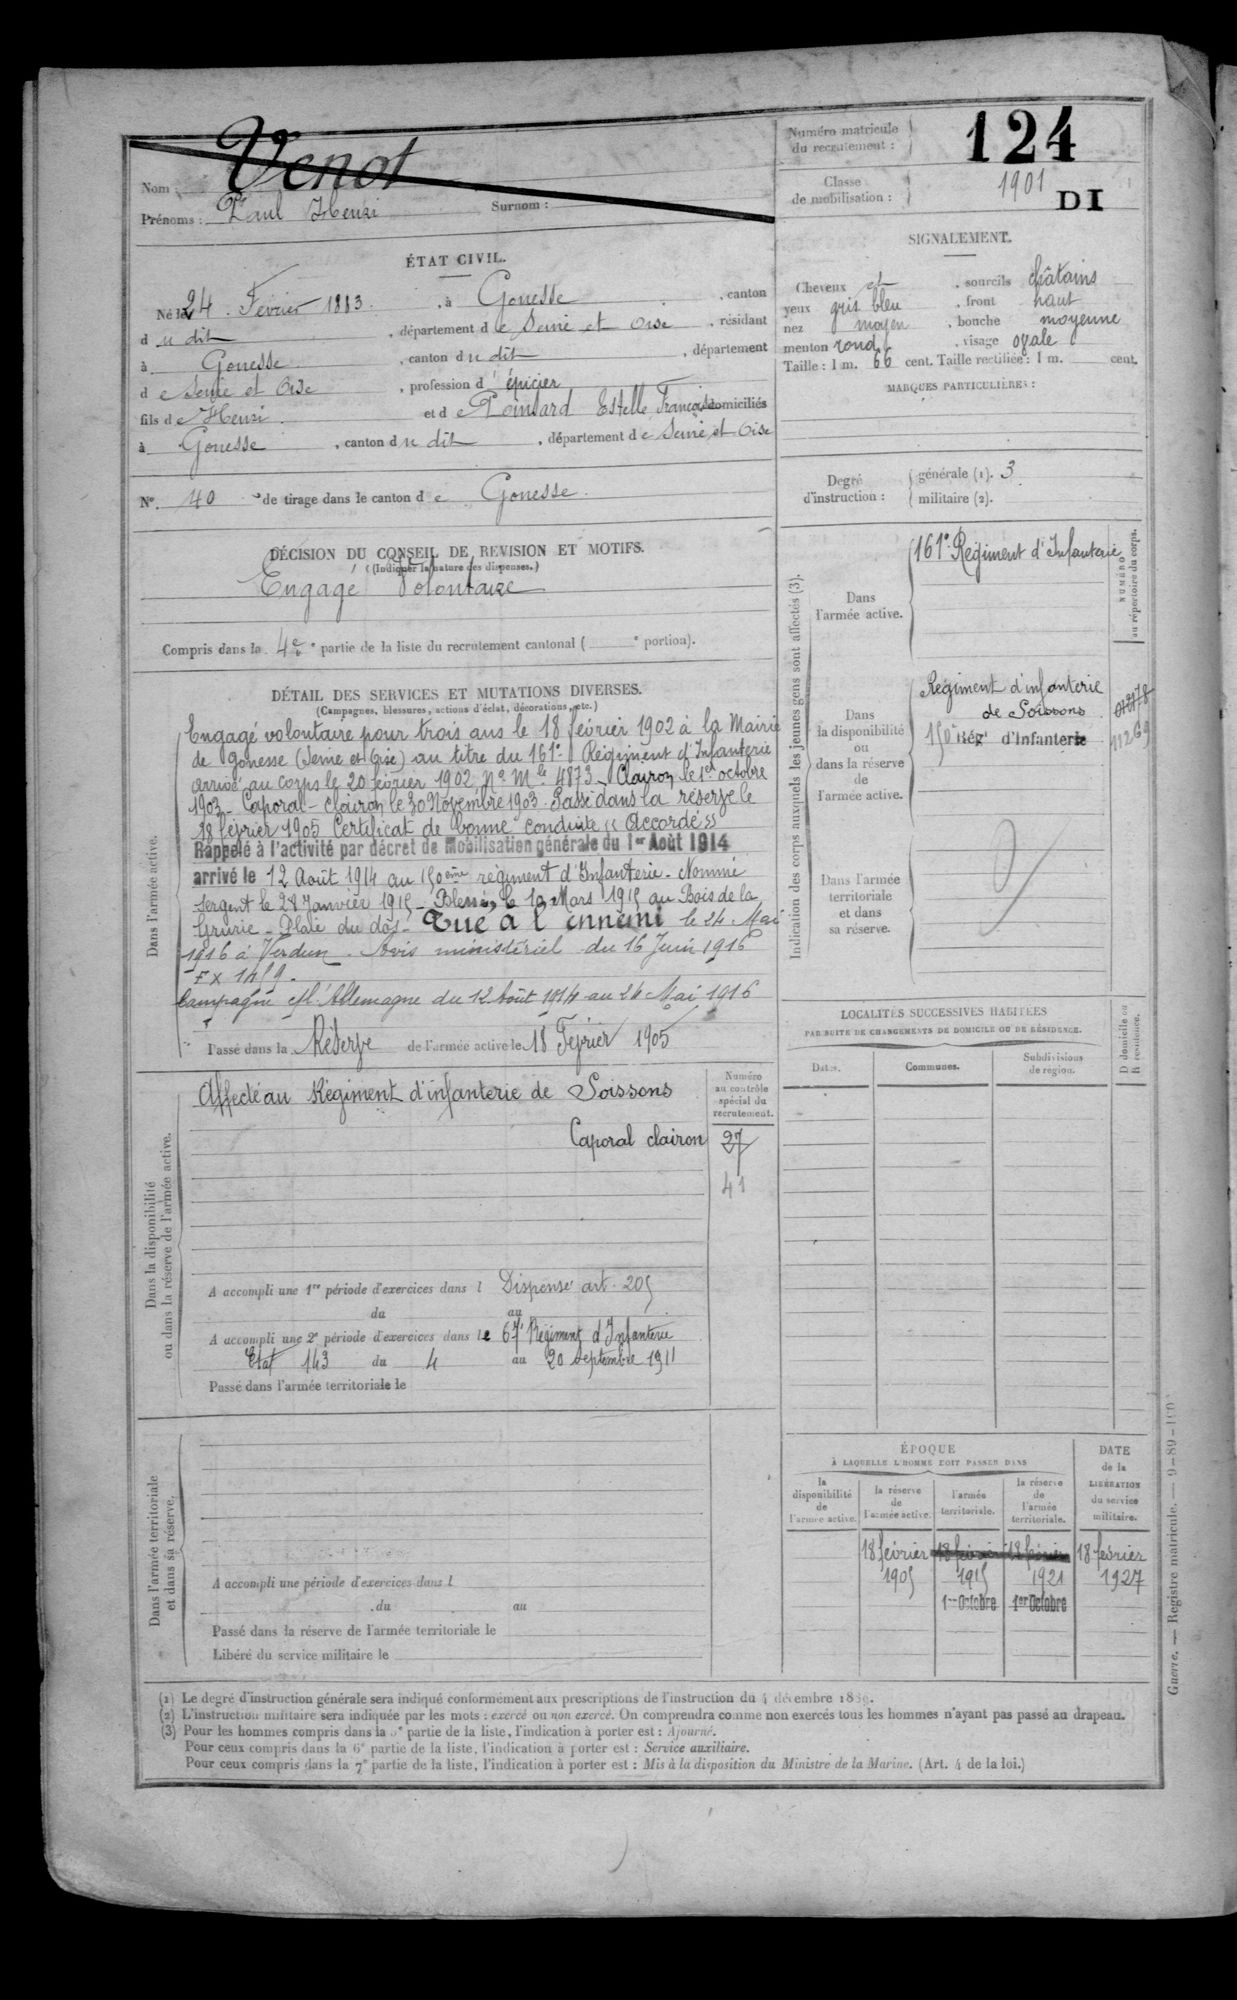 Nom : Venot
Prénoms : Paul Henri Surnom :
Numéro matricule
du recrutement : 124
Classe
de mobilisation : 1901
DI
ÉTAT CIVIL.
Né le 24 Février 1883 , à Gonesse , canton
d u dit , département d e Seine et Oise , résidant
à Gonesse , canton d u dit , département
d e Seine et Oise , profession d' épicier
fils d e Henri et d e Poinsard Estelle Françoise domiciliés
à Gonesse , canton d u dit , département d e Seine et Oise
N° 40 de tirage dans le canton d e Gonesse.
SIGNALEMENT.
Cheveux et , sourcils châtains
yeux gris bleu , front haut
nez moyen , bouche moyenne
menton rond , visage ovale
Taille : 1 m. 66 cent. Taille rectifiée : 1 m. cent.
MARQUES PARTICULIÈRES :
Degré
d'instruction :
générale (1). 3
militaire (2).
DÉCISION DU CONSEIL DE REVISION ET MOTIFS.
(Indiquer la nature des dispenses.)
Engagé Volontaire
Compris dans la 4e partie de la liste du recrutement cantonal ( e portion).
DÉTAIL DES SERVICES ET MUTATIONS DIVERSES.
(Campagnes, blessures, actions d'éclat, décorations, etc.)
Dans l'armée active.
Engagé volontaire pour trois ans le 18 février 1902 à la Mairie
de Gonesse (Seine et Oise) au titre du 161e Régiment d'Infanterie
arrivé au corps le 20 février 1902 No Mle 4873 - Clairon le 1er octobre
1903 - Caporal - clairon le 30 Novembre 1903. Passé dans la réserve le
18 février 1905 Certificat de bonne conduite "Accordé"
Rappelé à l'activité par décret de Mobilisation générale du 1er Août 1914
arrivé le 12 Août 1914 au 150ème régiment d'Infanterie - Nommé
sergent le 28 Janvier 1915 - Blessé le 10 Mars 1915 au Bois de la
Grurie - Plaie du dos - Tué à l'ennemi le 24 Mai
1916 à Verdun. Avis ministériel du 16 Juin 1916
FX 1459.
Campagne c/l'Allemagne du 12 Août 1914 au 24 Mai 1916
Passé dans la Réserve de l'armée active le 18 Février 1905
Indication des corps auxquels les jeunes gens sont affectés (3).
NUMÉRO
au répertoire du corps.
Dans
l'armée active.
161e Régiment d'Infanterie
Dans
la disponibilité
ou
dans la réserve
de
l'armée active.
Régiment d'infanterie
de Soissons
150e Régt d'Infanterie
11269
Dans l'armée
territoriale
et dans
sa réserve.
LOCALITÉS SUCCESSIVES HABITÉES
PAR SUITE DE CHANGEMENTS DE DOMICILE OU DE RÉSIDENCE.
Dates.
Communes.
Subdivisions
de région.
D domicile ou
R résidence.
Dans la disponibilité
ou dans la réserve de l'armée active.
Numéro
au contrôle
spécial du
recrutement.
Affecté au Régiment d'infanterie de Soissons
Caporal clairon 27
41
A accompli une 1re période d'exercices dans l Dispensé art. 205
du au
A accompli une 2e période d'exercices dans le 67e Régiment d'Infanterie
Etat 143 du 4 au 20 septembre 1911
Passé dans l'armée territoriale le
ÉPOQUE
À LAQUELLE L'HOMME DOIT PASSER DANS
la
disponibilité
de
l'armée active.
la réserve
de
l'armée active.
l'armée
territoriale.
la réserve
de
l'armée
territoriale.
DATE
de la
LIBÉRATION
du service
militaire.
18 février 18 février 18 février 18 février
1905 1915 1921 1927
1er Octobre 1er Octobre
Dans l'armée territoriale
et dans sa réserve.
A accompli une période d'exercices dans l
du au
Passé dans la réserve de l'armée territoriale le
Libéré du service militaire le
(1) Le degré d'instruction générale sera indiqué conformément aux prescriptions de l'instruction du 4 décembre 1889.
(2) L'instruction militaire sera indiquée par les mots : exercé ou non exercé. On comprendra comme non exercés tous les hommes n'ayant pas passé au drapeau.
(3) Pour les hommes compris dans la 5e partie de la liste, l'indication à porter est : Ajourné.
Pour ceux compris dans la 6e partie de la liste, l'indication à porter est : Service auxiliaire.
Pour ceux compris dans la 7e partie de la liste, l'indication à porter est : Mis à la disposition du Ministre de la Marine. (Art. 4 de la loi.)
Guerre. — Registre matricule. — 9-89-